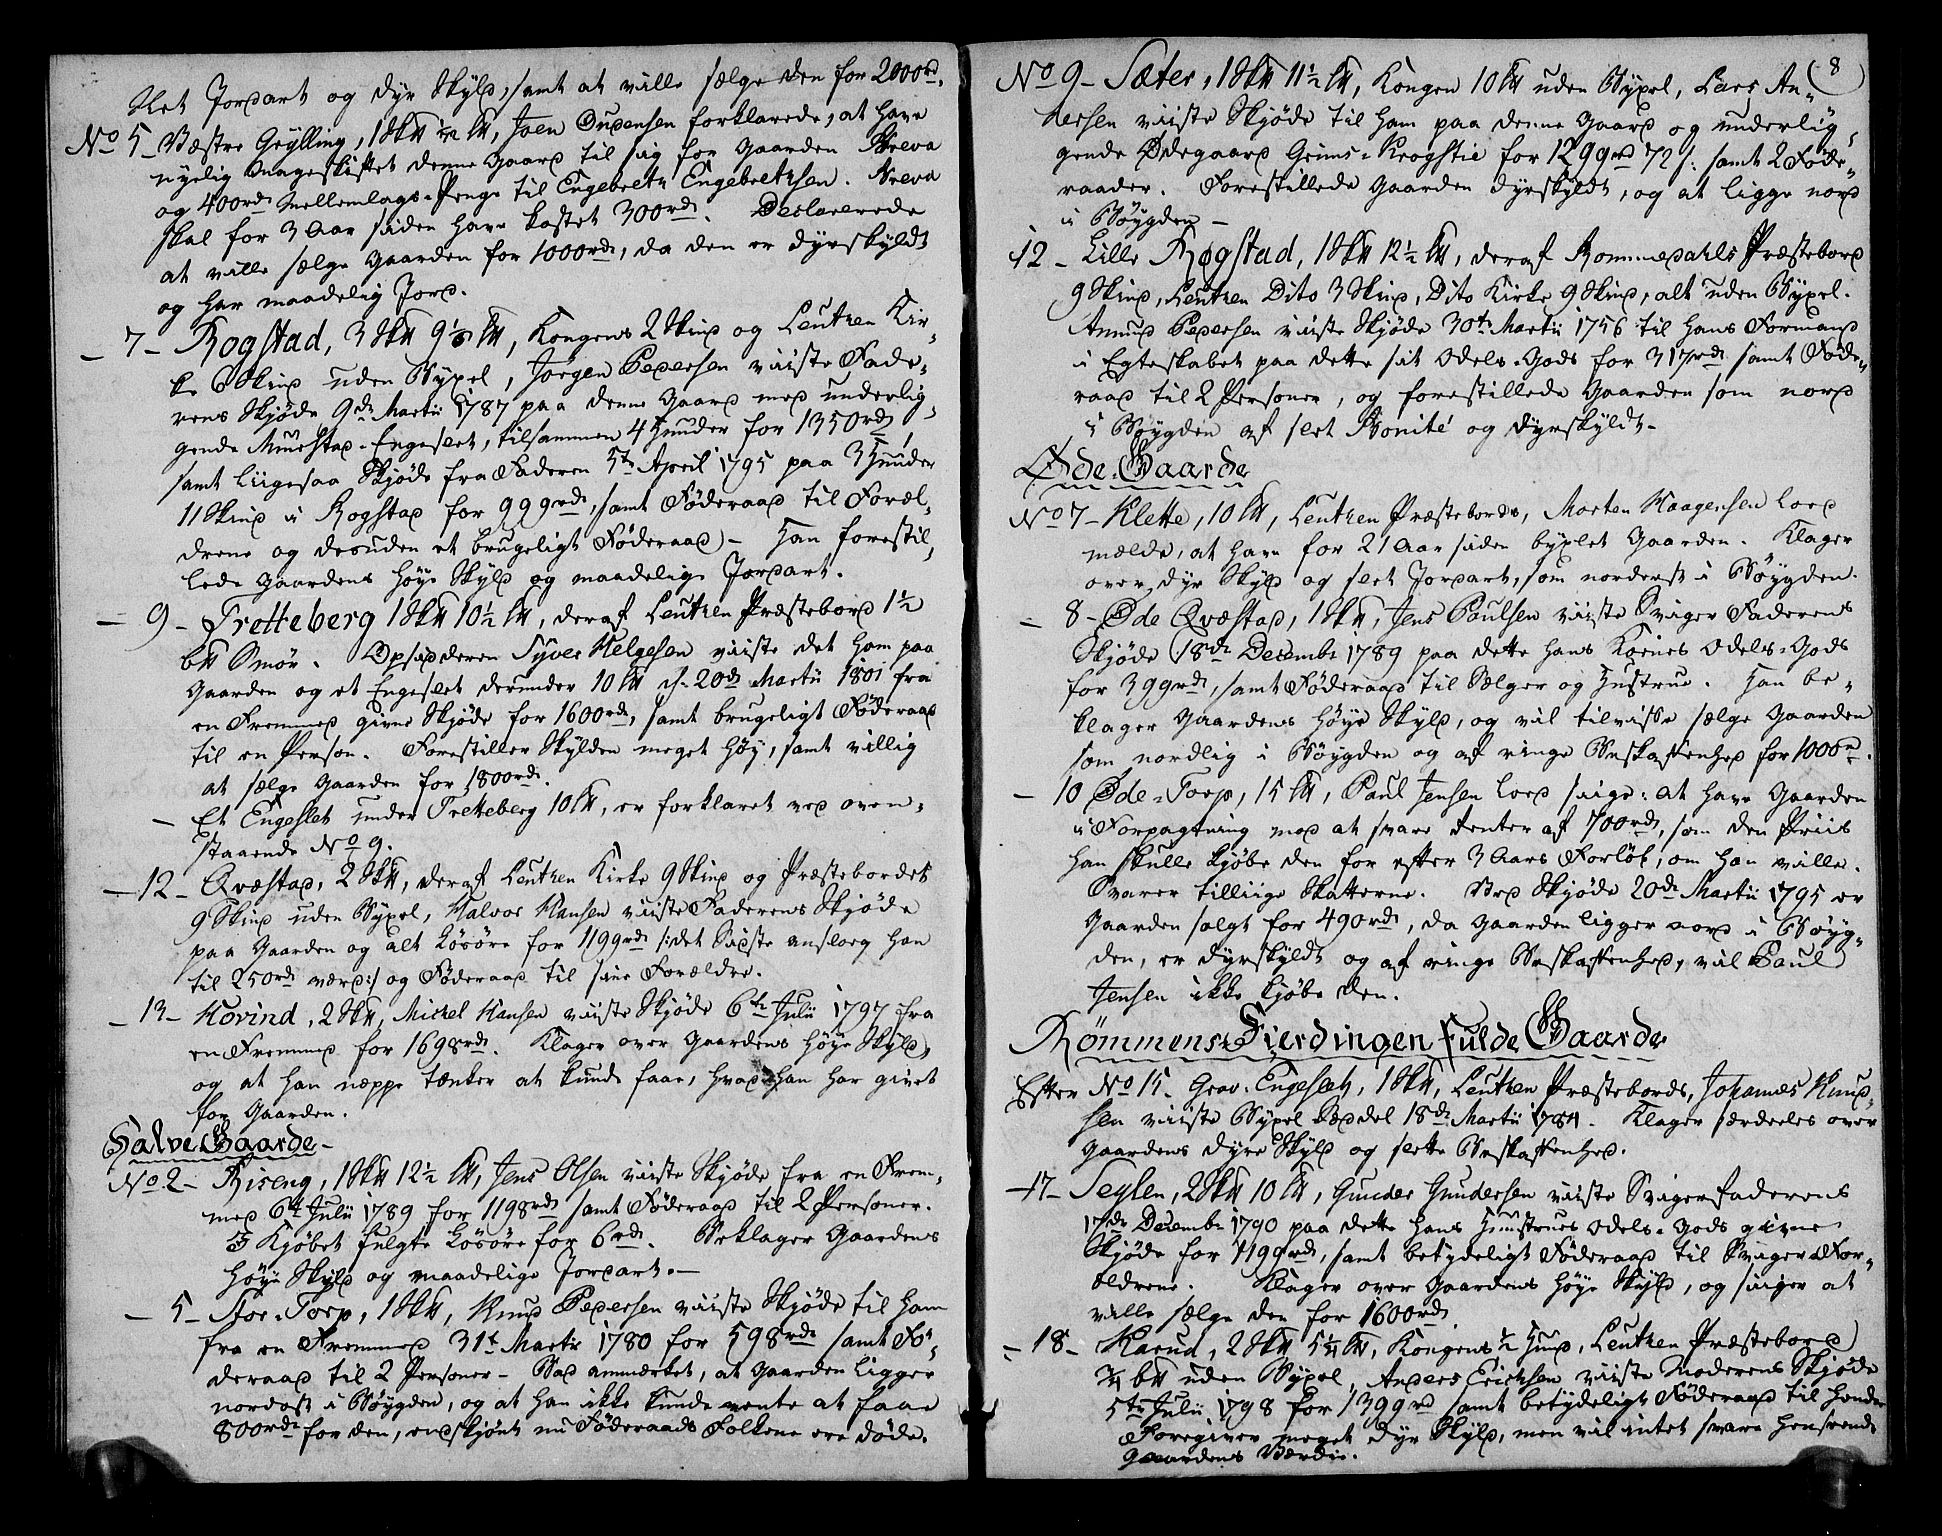 slet Jordart og dyr Skyld, samt at ville sælge den for 2000rd.
No 5 - Væstre Grylling, 1 Sk℔ ½ L℔, Joen forklarede, at have
nyelig Mageskiftet denne Gaard til sig for Gaarden Kreva
og 400rd Mellemlags-Penge til Engebreth Engebrethsen. Kreva
skal for 3 Aar siden have kostet 300rd. Declarerede
at ville sælge Gaarden for 1000rd, da den er dyrskyldt
og har maadelig Jord.
- 7 - Rogstad, 3 Sk℔ 9⅓ L℔, Kongens 2 Skind og Leuthen Kir-
ke 6 Skind uden Býxel, Jørgen Pedersen viiste Fade-
rens Skjøde 9de Martii 1787 paa denne Gaard med underlig-
gende Muurstad-Engeslet, tilsammen 4 Huuder for 1350rd,
samt liigesaa Skjøde fra Faderen 5te April 1795 paa 3 Huuder
11 Skind i Rogstad for 999rd, samt Føderaad til Foræl-
drene og desuden et brugeligt Føderaad - Han forestil-
lede Gaardens høye Skyld og maadelige Jordart.
- 9 - Fretteberg 1 Sk℔ 10½ L℔, deraf Leuthen Præstebord 1½
b℔ Smør. Opsidderen Syver Helgesen viiste det ham paa
Gaarden og et Engeslet derunder 10 L℔ d. 20de Martii 1801 fra
en Fremmed givne Skjøde for 1600rd, samt brugeligt Føderaad
til en Person. Forestiller Skylden meget høy, samt villig
at sælge Gaarden for 1800rd.
- Et Engeslet under Fretteberg 10 L℔, er forklaret ved oven-
staaende No 9.
- 12 - Qvæstad, 2 Sk℔, deraf Leuthen Kirke 9 Skind og Præstebordet
9 Skind uden Býxel, Halvor Hansen viiste Faderens Skjøde
paa Gaarden og alt Løsøre for 1199rd /: det Sidste anslog han
til 250rd værd :/ og Føderaad til sine Forældre.
- 13 - Hovind, 2 Sk℔, Michel Hansen viiste Skjøde 6te Julii 1797 fra
en Fremmed for 1698rd. Klager over Gaardens høye Skyld,
og at han næppe tænker at kunde faae, hvad han har givet
for Gaarden.
Halve Gaarde -
No 2 - Riseng, 1 Sk℔ 12½ L℔, Jens Olsen viiste Skjøde fra en Frem-
med 6te Julii 1789 for 1198rd samt Føderaad til 2 Personer.
I Kjøbet fulgte Løsøre for 6rd. Beklager Gaardens
høye Skyld og maadelige Jordart. -
- 5 - Stor-Torp, 1 Sk℔, Knud Pedersen viiste Skjøde til ham
fra en Fremmed 31te Martii 1780 for 598rd samt Fø-
deraad til 2 Personer - Bad anmærket, at Gaarden ligger
nordost i Bøygden, og at han ikke kunde vente at faae
800rd for den, endskjønt nu Føderaads Folkene ere døde.
8
No 9 - Sæter, 1 Sk℔ 11½ L℔, Kongen 10 L℔ uden Býxel, Lars An-
dersen viiste Skjøde til ham paa denne Gaard og underlig-
gende Ødegaard Grims-Krogstie for 1299rd 72 s. samt 2 Føde-
raader. Forestillede Gaarden dyrskyldt, og at ligge nord
i Bøygden -
12 - Lille Rogstad, 1 Sk℔ 12½ L℔, deraf Rommedahls Præstebord
9 Skind, Leuthen Dito 3 Skind, Dito Kirke 9 Skind, alt uden Býxel.
Amund Pedersen viiste Skjøde 30te Martii 1756 til hans Formand
i Egteskabet paa dette sit Odels-Gods for 317rd samt Føde-
raad til 2 Personer, og forestillede Gaarden som nord
i Bøygden af slet Bonité og dyrskyldt -
Øde-Gaarde
No 7 - Klette, 10 L℔, Leuthen Præstebords, Morten Haagensen lod
mælde, at have for 21 Aar siden byxlet Gaarden. Klager
over dyr Skyld og slet Jordart, som norderst i Bøygden.
- 8 - Øde Qvæstad, 1 Sk℔, Jens Paulsen viiste Sviger Faderens
Skjøde 18de Decembr 1789 paa dette hans Kones Odels-Gods
for 399rd, samt Føderaad til Sælger og Hustrue. Han be-
klager Gaardens høye Skyld, og vil tilvisse sælge Gaarden
som nordlig i Bøygden og af ringe Beskaffenhed for 1000rd.
- 10 Øde-Torp, 15 L℔, Paul Jensen lod siige: at have Gaarden
i Forpagtning med at svare Renter af 700rd, som den Priis
han skulle kjøbe den for efter 3 Aars Forløb, om han ville.
Svarer tilliige Skatterne. Ved Skjøde 20de Martii 1795 er
Gaarden solgt for 490rd, da Gaarden ligger nord i Bøyg-
den, er dyrskyldt og af ringe Beskaffenhed, vil Paul
Jensen ikke kjøbe den.
Rømmens-Fierdingen Fulde Gaarde
Efter No 15. Grav-Engesletz, 1 Sk℔, Leuthen Præstebords, Johannes Knud-
sen viiste Býxel Seddel 18de Martii 1784. Klager særdeeles over
Gaardens dyre Skyld og slette Beskaffenhed.
- 17 - Seglen, 2 Sk℔ 10 L℔, Gunder Gundersen viiste Svigerfaderens
17de Decembr 1790 paa dette hans Huustrues Odels-Gods givne
Skjøde for 1199rd, samt betydeligt Føderaad til Sviger-For-
ældrene. Klager over Gaardens høye Skyld, og siiger at
ville sælge den for 1600rd.
- 18 - Harud, 2 Sk℔ 5¼ L℔, Kongens ½ Huud, Leuthen Præstebord
¾ b℔ uden Býxel, Anders Erichsen viiste Moderens Skjøde
5te Julii 1798 for 1399rd samt betydeligt Føderaad til hende
Foregiver meget dyr Skyld, men vil intet svare henseende
Gaardens Værdie.